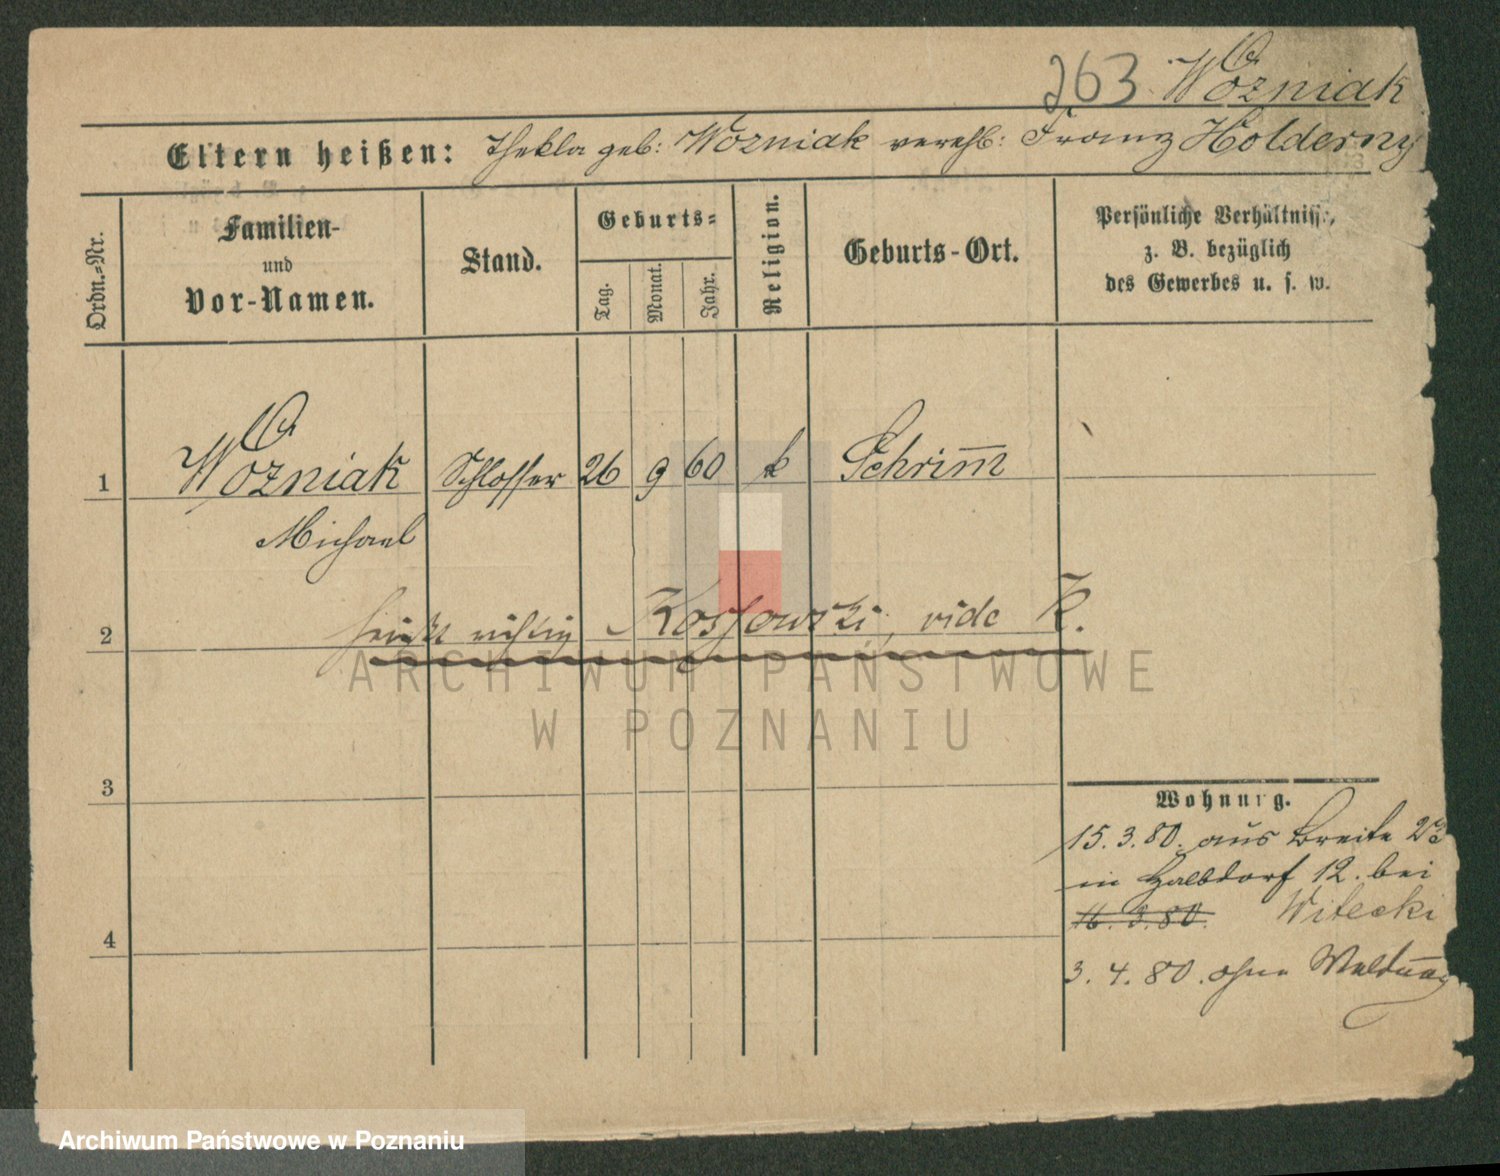 263 Wozniak
Eltern heißen: Thekla geb: Wozniak verehl: Franz Holderny
Ordn.-Nr.
Familien-
und
Vor-Namen.
Stand.
Geburts-
Tag.
Monat.
Jahr.
Religion.
Geburts-Ort.
Persönliche Verhältnisse,
z. B. bezüglich
des Gewerbes u. s. w.
1 Wozniak Schlosser 26 9 60 k Schrim̅
Michael
2 heißt richtig Kossowski, vide K.
ARCHIWUM PAŃSTWOWE
W POZNANIU
3
Wohnung.
15. 3. 80. aus Breite 23
in Halbdorf 12. bei
16. 3. 80. Witecki
4
3. 4. 80. ohne Meldung
Archiwum Państwowe w Poznaniu